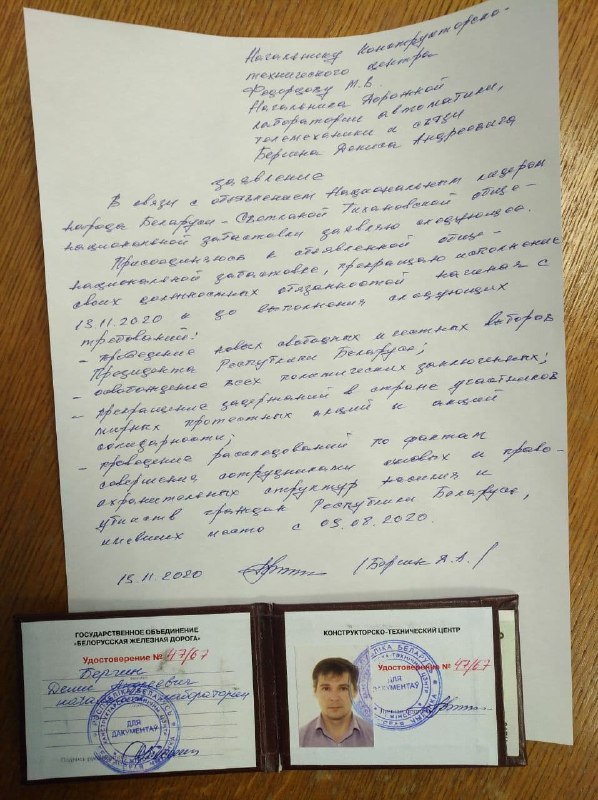 Начальнику Конструкторско-
технического центра
Федорцову М.В.
Начальника Дорожной
лаборатории автоматики,
телемеханики и связи
Берчина Дениса Андреевича
заявление
В связи с объявлением Национальным лидером
народа Беларуси - Светланой Тихановской обще-
национальной забастовки заявляю следующее.
Присоединяюсь к объявленной обще-
национальной забастовке, прекращаю исполнение
своих должностных обязанностей начиная с
13.11.2020 и до выполнения следующих
требований:
- проведение новых свободных и честных выборов
Президента Республики Беларусь;
- освобождение всех политических заключенных;
- прекращение задержаний в стране участников
мирных протестных акций и акций
солидарности;
- проведение расследований по фактам
совершения сотрудниками силовых и право-
охранительных структур насилия и
убийств граждан Республики Беларусь,
имевших место с 09.08.2020.
13.11.2020 /Берчин Д.А./
ГОСУДАРСТВЕННОЕ ОБЪЕДИНЕНИЕ
«БЕЛОРУССКАЯ ЖЕЛЕЗНАЯ ДОРОГА»
Удостоверение № 47/67
Берчин
Денис Андреевич
начальник лаборатории
ДЛЯ
ДАКУМЕНТАЎ
КОНСТРУКТОРСКО-ТЕХНИЧЕСКИЙ ЦЕНТР
Удостоверение № 47/67
ДЛЯ
ДАКУМЕНТАЎ